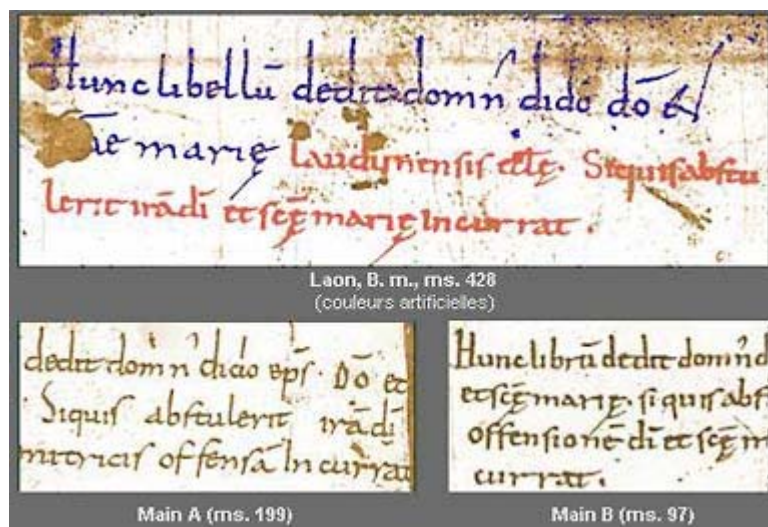 Hunc libellū dedit domn̄ dido dō et
scāe mariȩ laudunensis ecclȩ. Siquis abstu
lerit irā dī et scȩ̄ mariȩ Incurrat.
Laon, B. m., ms. 428
(couleurs artificielles)
dedit domn̄ dido ep̄s. Dō et
Siquis abstulerit irā dī
nitricis offensā Incurrat
Hunc librū dedit domn̄ d
et scȩ̄ mariȩ. siquis abs
offensionē dī et scȩ̄ m
currat.
Main A (ms. 199)
Main B (ms. 97)